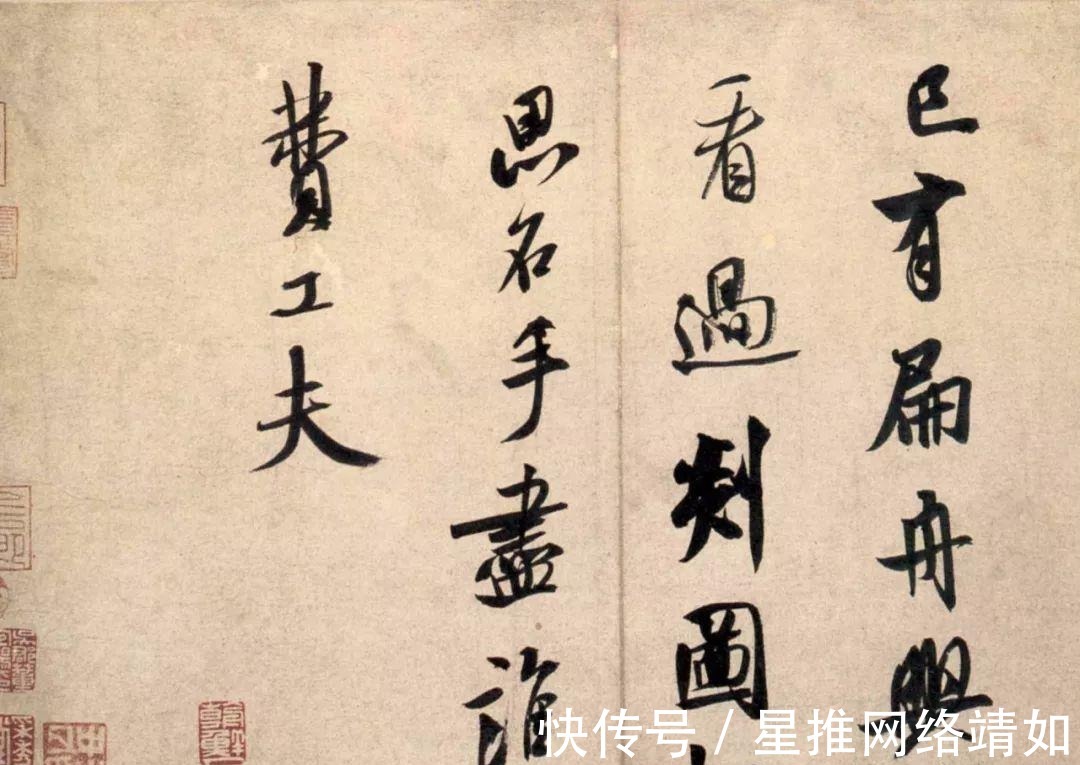 已有扁舟興
看過剡圖
思名手盡
費工夫
快传号 / 星推网络靖如